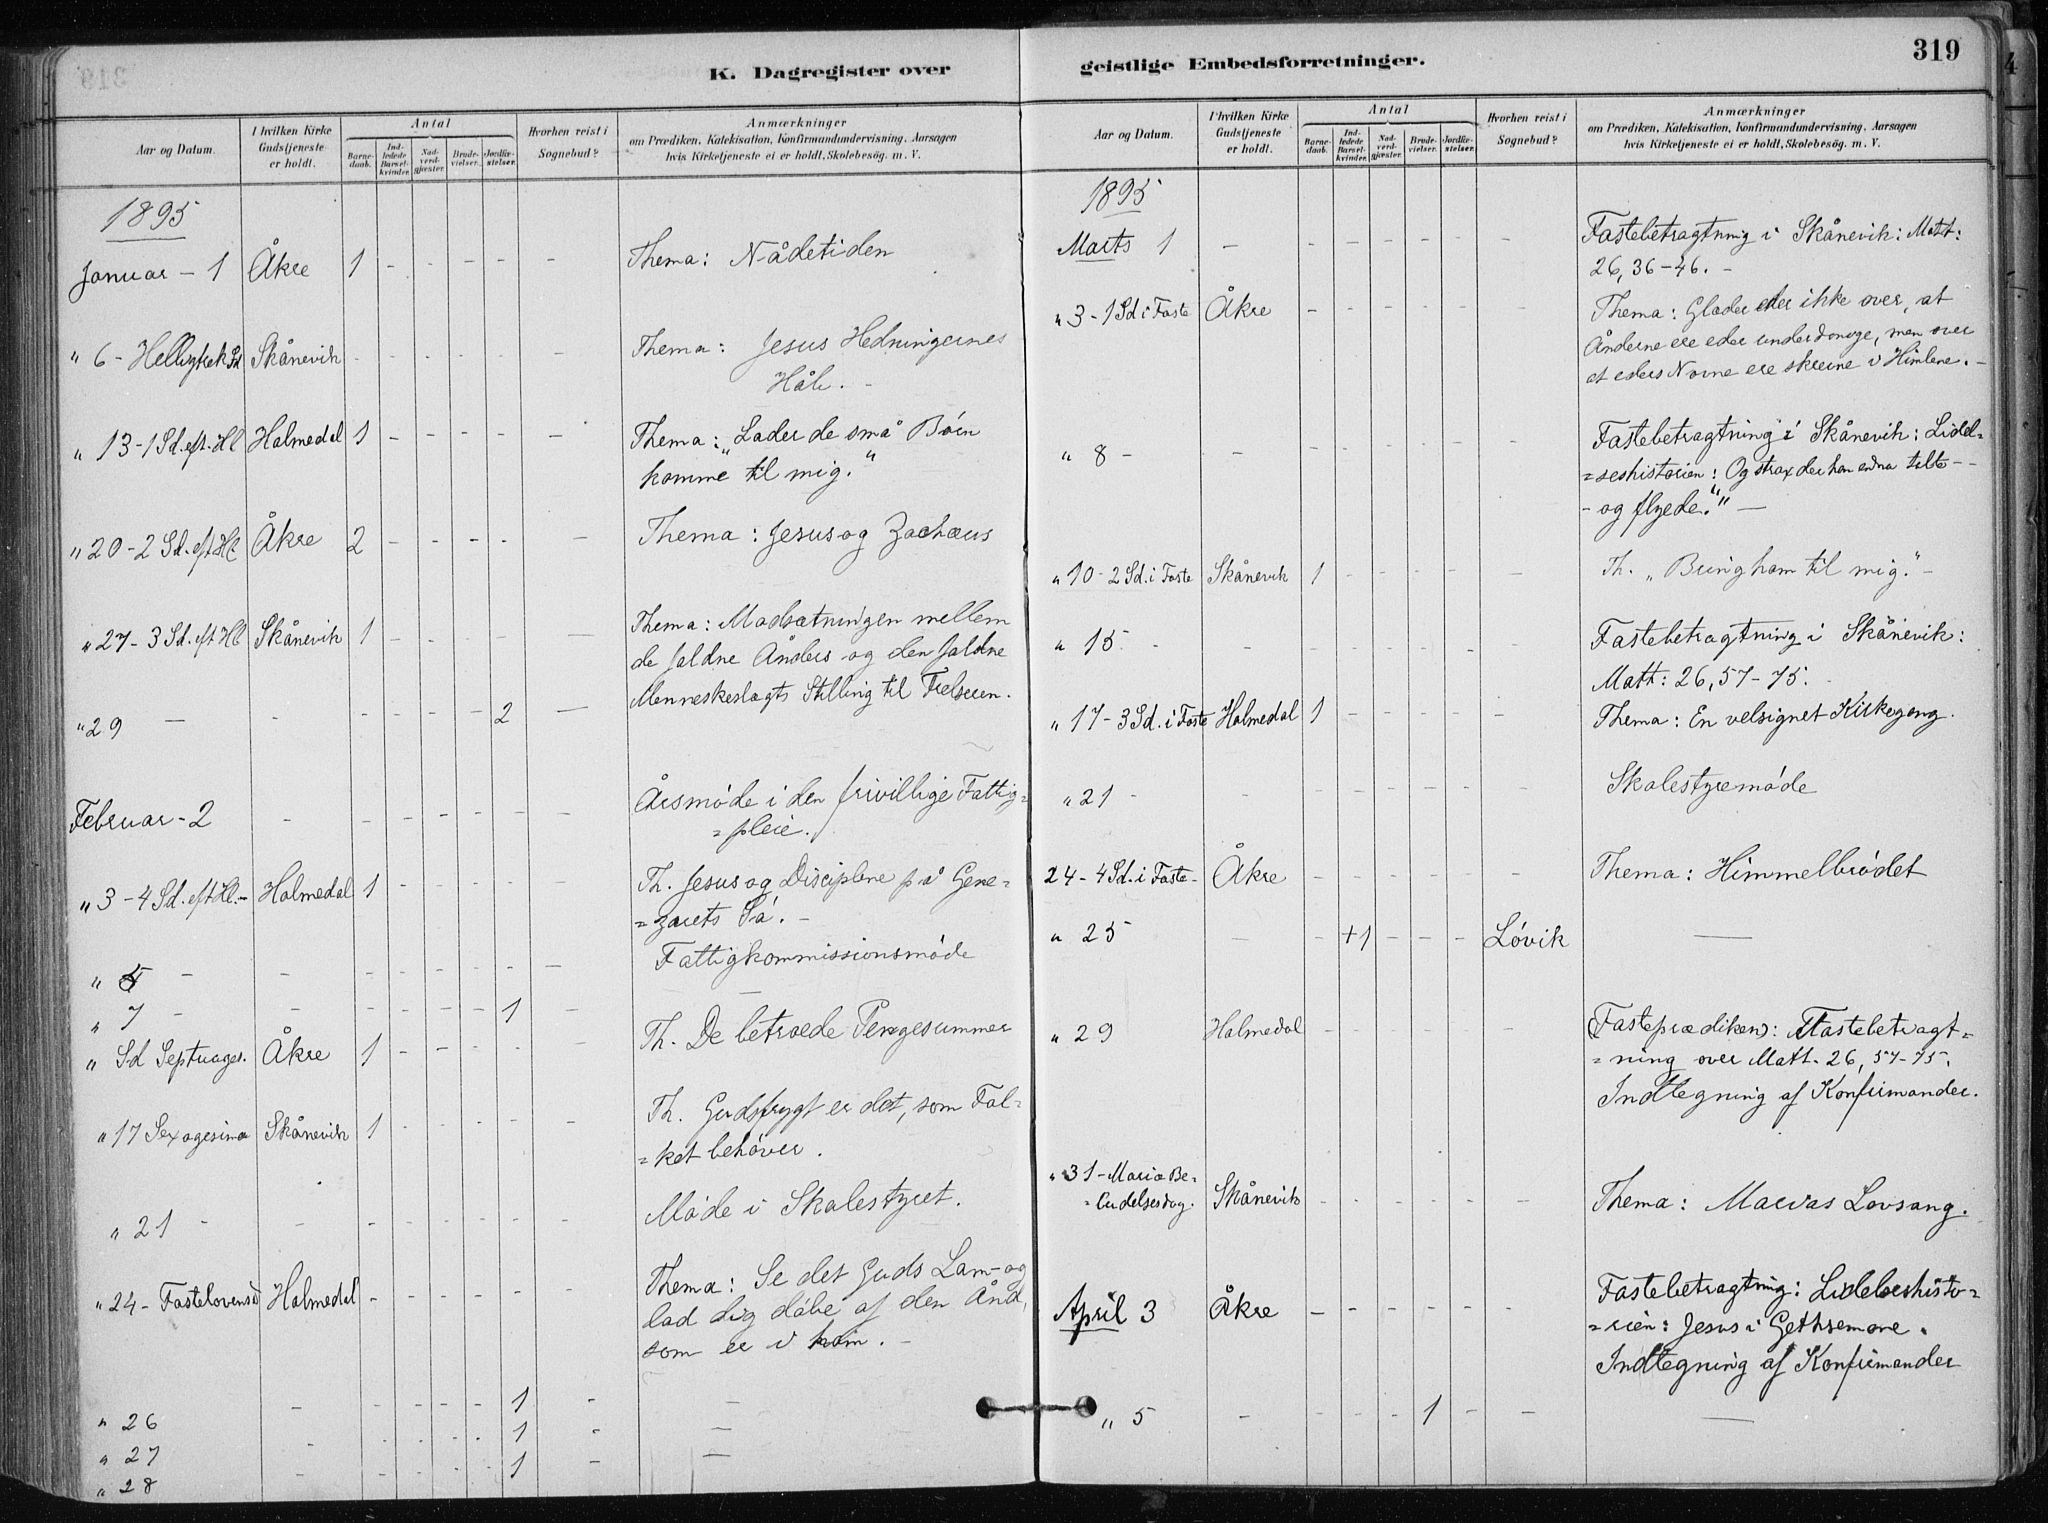 K. Dagregister over geistlige Embedsforretninger.
319
Aar og Datum. I hvilken Kirke Gudstjeneste er holdt. Antal Barnedaab. Indledede Barselkvinder. Nadverdgjæster. Brudevielser. Jordfæstelser. Hvorhen reist i Sognebud? Anmærkninger om Prædiken, Katekisation, Konfirmandundervisning. Aarsagen hvis Kirketjeneste ei er holdt, Skolebesög. m. V.
1895
Januar - 1 Åkre 1 - - - - - Thema: Nådetiden
" 6 - Skånevik - - - - - - Thema: Jesus Hedningernes
Håb. -
" 13 - 1 Sd. eft. Hl Holmedal 1 - - - - - Thema: "Lader de små Börn
komme til mig."
" 20 - 2 Sd. eft Hl Åkre 2 - - - - - Thema: Jesus og Zachæus
" 27 - 3 Sd. eft Hl Skånevik 1 - - - - - Thema: Modsætningen mellem
de faldne Ånders og den faldne
Menneskeslægts Stilling til Frelseren.
" 29 - - - - - - 2 -
Februar - 2 - - - - - - - Årsmöde i den frivillige Fattig=
=pleie.
" 3 - 4 Sd. eft Hl. - Holmedal 1 - - - - - Th. Jesus og Disciplene på Gene=
=zarets Sö. -
" 5 - - - - - - - - Fattigkommissionsmöde
" 7 - - - - - - 1 -
" Sd Septuages. Åkre 1 - - - - - Th. De betroede Pengesummer
" 17 Sexagesima Skånevik 1 - - - - - Th. Gudsfrygt er det, som Fol=
=ket behöver.
" 21 - - - - - - - - Möde i Skolestyret.
" 24 - Fastelovens Holmedal - - - - - - Thema: Se det Guds Lam - og
lad dig döbe af den Ånd,
som er i ham. -
" 26 - - - - - 1 - -
" 27 - - - - - 1 - -
" 28 - - - - - 1 - -
Aar og Datum. I hvilken Kirke Gudstjeneste er holdt. Antal Barnedaab. Indledede Barselkvinder. Nadverdgjæster. Brudevielser. Jordfæstelser. Hvorhen reist i Sognebud? Anmærkninger om Prædiken, Katekisation, Konfirmandundervisning. Aarsagen hvis Kirketjeneste ei er holdt, Skolebesög. m. V.
1895
Marts 1 - - - - - - - Fastebetragtning i Skånevik: Matt:
26, 36-46. -
" 3 - 1 Sd i Faste Åkre - - - - - - Thema: Glæder eder ikke over, at
Ånderne ere eder underdanige, men over
at eders Navne ere skrevne i Himlene. -
" 8 - - - - - - - - Fastebetragtning i Skånevik: Lidel=
=seshistorien: Og strax der han endnu talte - -
- og flyede." -
" 10 - 2 Sd. i Faste Skånevik 1 - - - - - Th. "Bring ham til mig." -
" 15 - - - - - - - - Fastebetragtning i Skånevik:
Matt: 26, 57-75.
" 17 - 3 Sd. i Faste Holmedal 1 - - - - - Thema: En velsignet Kirkegang.
" 21 - - - - - - - - Skolestyremöde
24 - 4 Sd. i Faste - Åkre - - - - - - Thema: Himmelbrödet
" 25 - - +1 - - - Lövik -
" 29 Holmedal - - - - - - (Fasteprædiken): Fastebetragt=
=ning over Matt. 26, 57-75.
Indtegning af Konfirmander.
" 31 - Mariæ Be-
=budelsesdag. Skånevik - - - - - - Thema: Marias Lovsang.
April 3 Åkre - - - - - - Fastebetragtning: Lidelseshisto=
=rien: Jesus i Gethsemane.
Indtegning af Konfirmander
" 5 - - - - 1 - - -